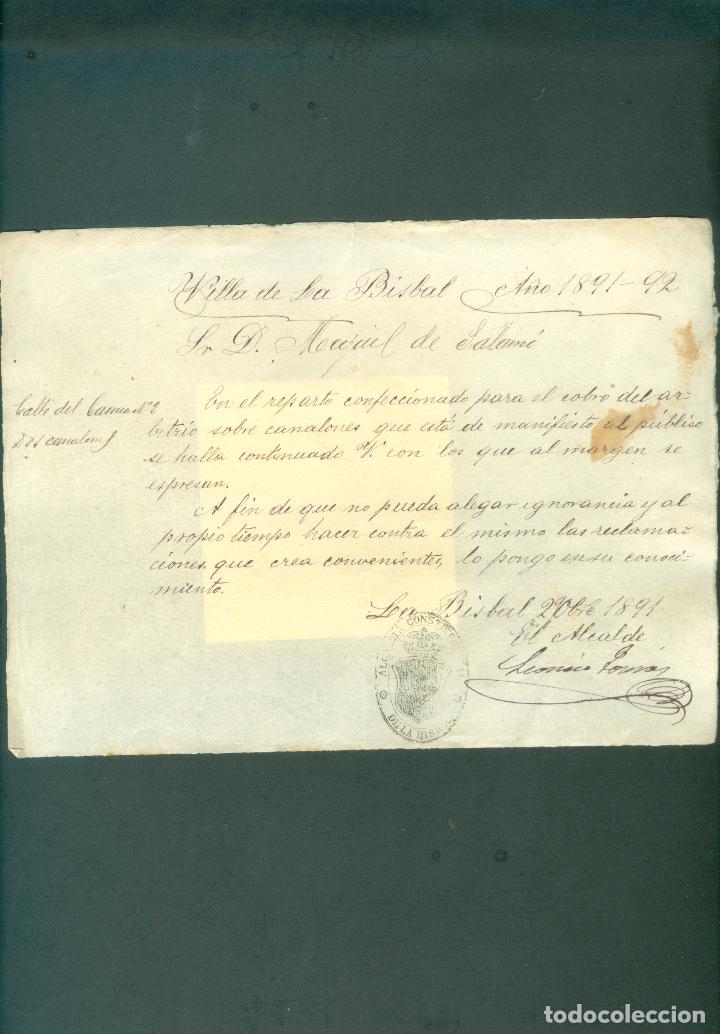 Villa de La Bisbal Año 1891-92
Sr. D. Miguel de Salamó
Calle del N.º 2
Dos canalones
En el reparto confeccionado para el cobro del ar-
bitrio sobre canalones que está de manifiesto al público
se halla continuado V. con los que al margen se
espresan.
A fin de que no pueda alegar ignorancia y al
propio tiempo hacer contra el mismo las reclama-
ciones que crea convenientes, lo pongo en su conoci-
miento.
La Bisbal 1891
El Alcalde
ALCALDIA CONST
DE LA BISBAL
todocoleccion